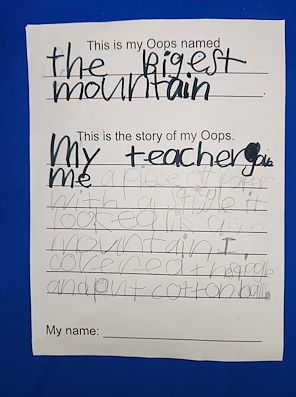 This is my Oops named
the Bigest
mountain
This is the story of my Oops.
My teacher gave
me a piece of paper
with a it
looked like a
mountain I
covered the
and put cotton balls
My name: